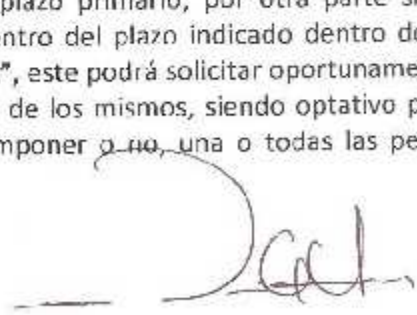 plazo primario, por otra parte s
entro del plazo indicado dentro d
", este podrá solicitar oportuname
de los mismos, siendo optativo p
mponer o no, una o todas las pe